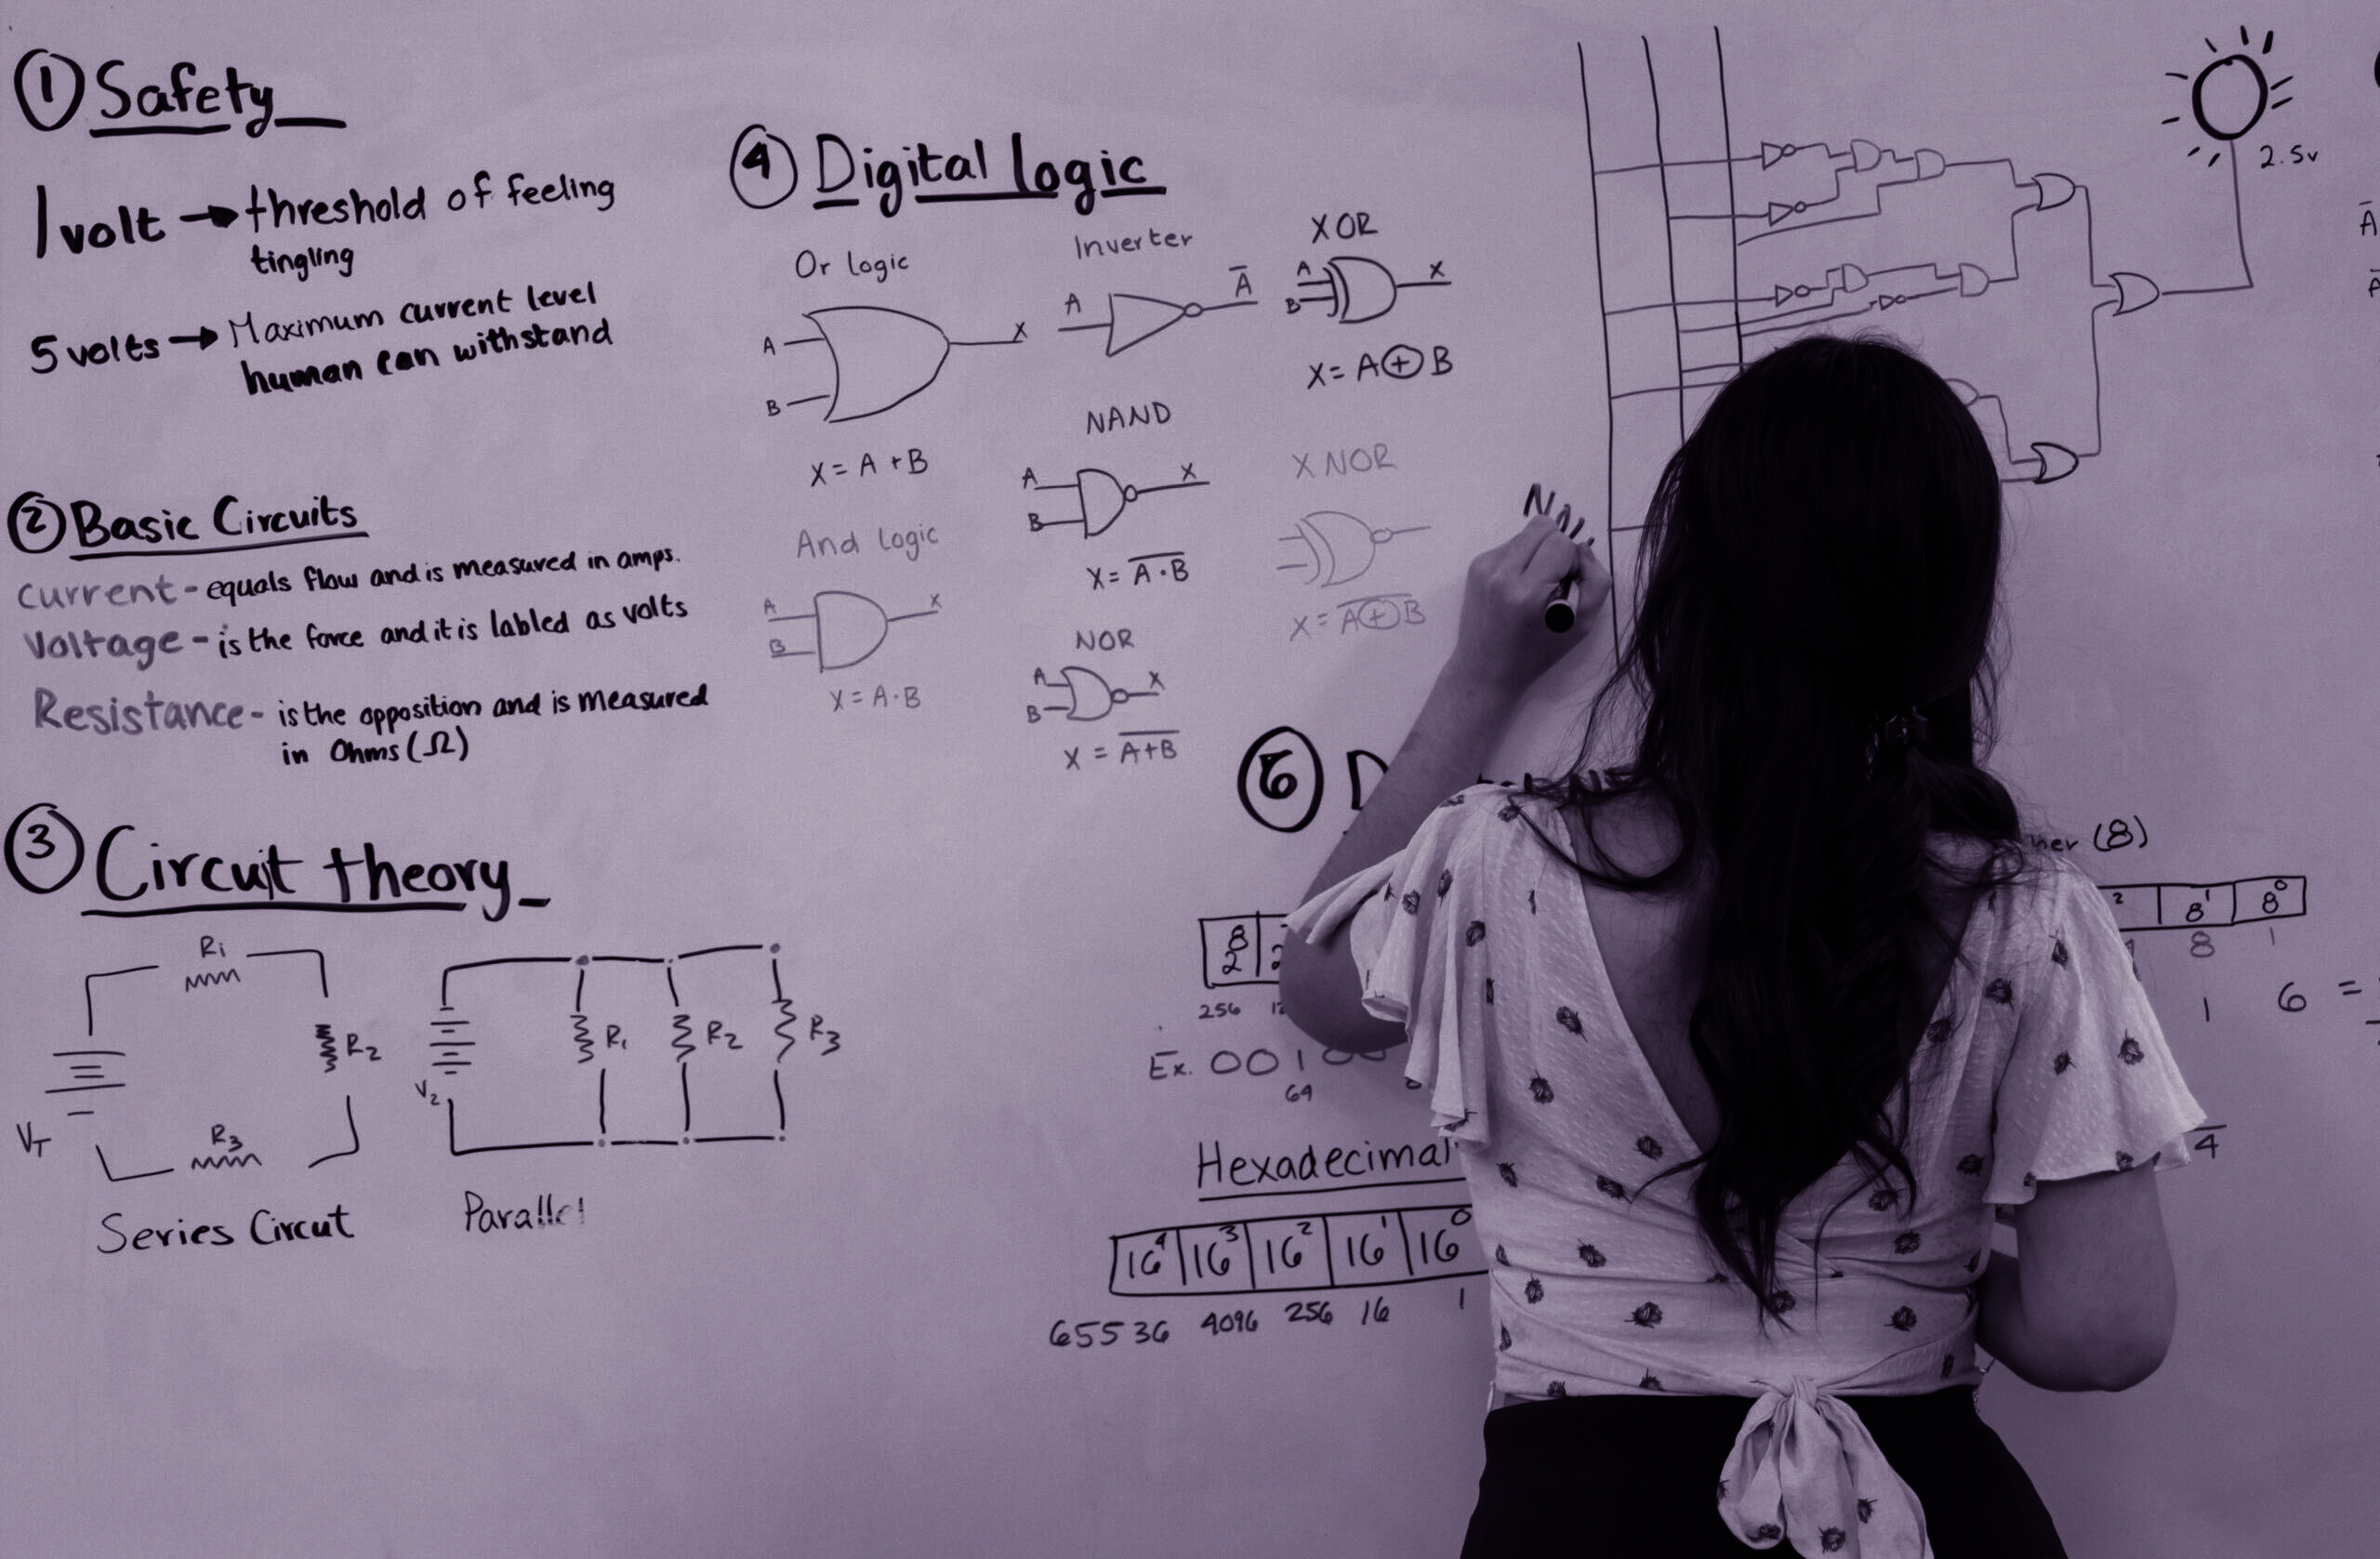 ① Safety
1 volt → threshold of feeling
tingling
5 volts → Maximum current level
human can withstand
② Basic Circuits
Current - equals flow and is measured in amps.
Voltage - is the force and it is labled as volts
Resistance - is the opposition and is measured
in Ohms (Ω)
③ Circuit theory
R1
R2
R3
VT
Series Circut
R1
R2
R3
V2
Parallel
④ Digital logic
Or logic
A
B
X
X = A + B
And Logic
A
B
X
X = A·B
Inverter
A
A̅
NAND
A
B
X
X = A̅·̅B̅
NOR
A
B
X
X = A̅+̅B̅
XOR
A
B
X
X = A ⊕ B
X NOR
X = A̅⊕̅B̅
2.5v
A̅
(8)
8¹ 8⁰
8 1
1 6 =
4
2⁸
256
Ex. 0 0 1 0 0
64
Hexadecimal
16⁴ 16³ 16² 16¹ 16⁰
65536 4096 256 16 1